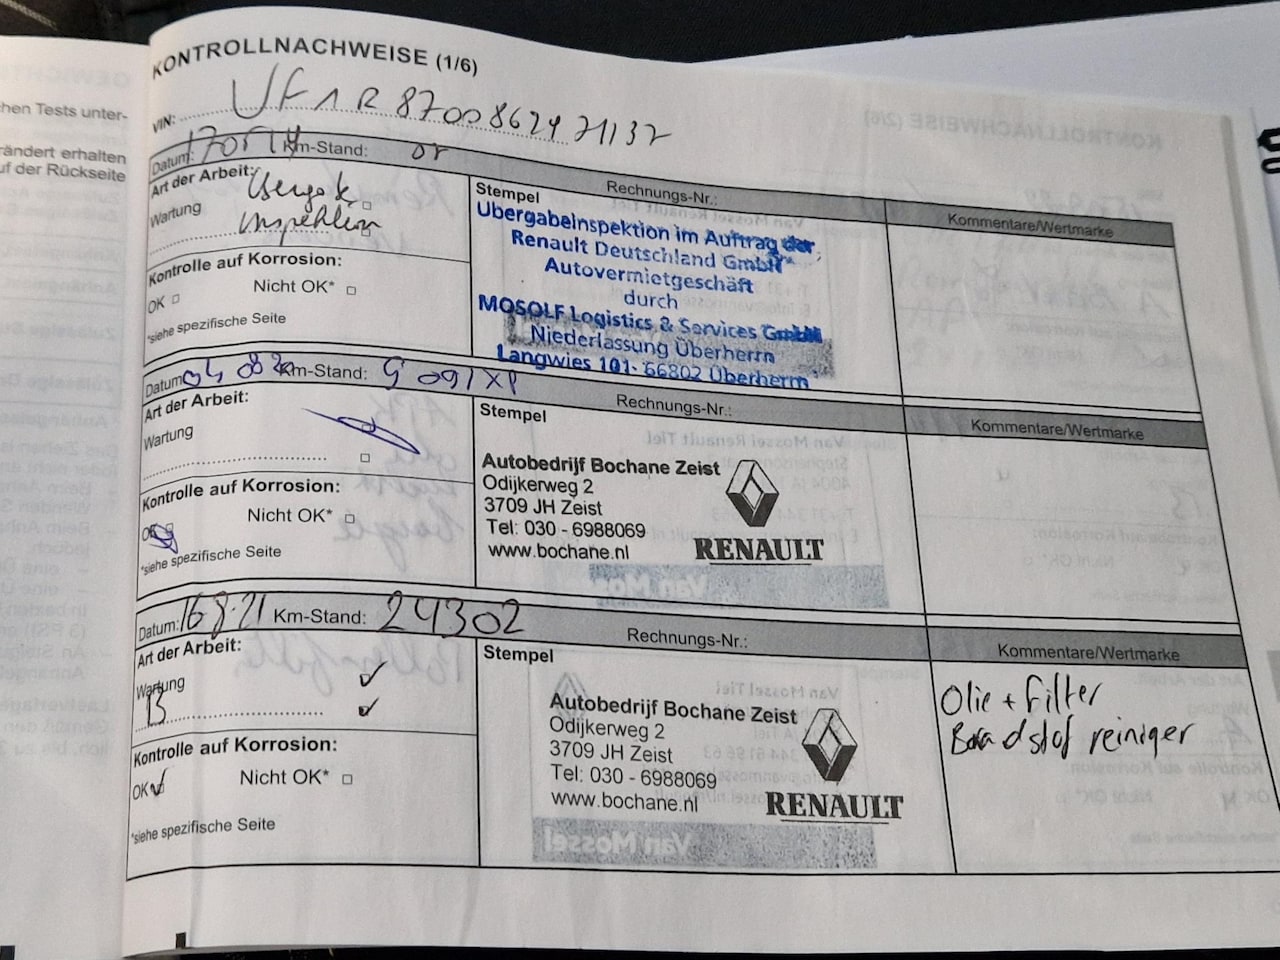 KONTROLLNACHWEISE (1/6)
VIN:
Datum: Km-Stand: Rechnungs-Nr.: Kommentare/Wertmarke
Art der Arbeit:
Wartung
Stempel
Übergabeinspektion im Auftrag der
Renault Deutschland GmbH
Autovermietgeschäft
durch
MOSOLF Logistics & Services GmbH
Niederlassung Überherrn
Langwies 101- 66802 Überherrn
Kontrolle auf Korrosion:
OK Nicht OK*
*siehe spezifische Seite
Datum: Km-Stand: Rechnungs-Nr.: Kommentare/Wertmarke
Art der Arbeit:
Wartung
Stempel
Autobedrijf Bochane Zeist
Odijkerweg 2
3709 JH Zeist
Tel: 030 - 6988069
www.bochane.nl
RENAULT
Kontrolle auf Korrosion:
OK Nicht OK*
*siehe spezifische Seite
Datum: 16-8-21 Km-Stand: 24302 Rechnungs-Nr.: Kommentare/Wertmarke
Art der Arbeit:
Wartung
B
Stempel
Autobedrijf Bochane Zeist
Odijkerweg 2
3709 JH Zeist
Tel: 030 - 6988069
www.bochane.nl
RENAULT
Olie + filter
reiniger
Kontrolle auf Korrosion:
OK Nicht OK*
*siehe spezifische Seite
hen Tests unter-
rändert erhalten
uf der Rückseite